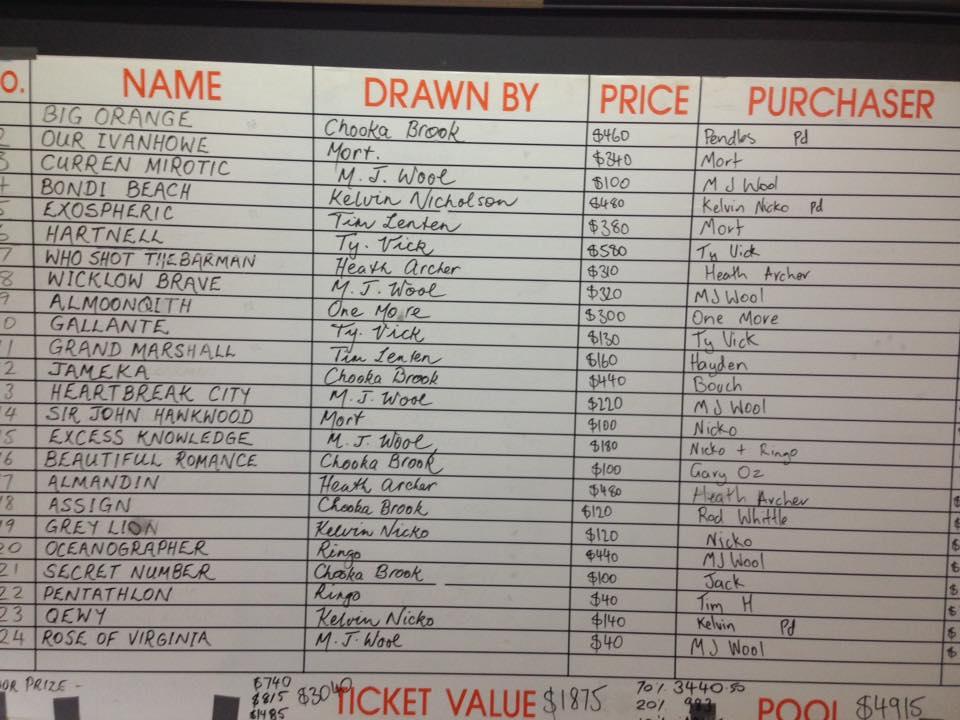 O. NAME DRAWN BY PRICE PURCHASER
BIG ORANGE Chooka Brook $460 Pendles Pd
2 OUR IVANHOWE Mort. $340 Mort
3 CURREN MIROTIC M. J. Wool $100 M J Wool
4 BONDI BEACH Kelvin Nicholson $480 Kelvin Nicko Pd
5 EXOSPHERIC Tim Lenten $380 Mort
6 HARTNELL Ty. Vick $580 Ty Vick
7 WHO SHOT THEBARMAN Heath Archer $310 Heath Archer
8 WICKLOW BRAVE M. J. Wool $320 MJ Wool
9 ALMOONQITH One More $300 One More
0 GALLANTE Ty. Vick $130 Ty Vick
11 GRAND MARSHALL Tim Lenten $160 Hayden
2 JAMEKA Chooka Brook $440 Bouch
3 HEARTBREAK CITY M. J. Wool $220 MJ Wool
14 SIR JOHN HAWKWOOD Mort $100 Nicko
15 EXCESS KNOWLEDGE M. J. Wool $180 Nicko + Ringo
16 BEAUTIFUL ROMANCE Chooka Brook $100 Gary Oz
17 ALMANDIN Heath Archer $480 Heath Archer
18 ASSIGN Chooka Brook $120 Rod Whittle
19 GREY LION Kelvin Nicko $120 Nicko
20 OCEANOGRAPHER Ringo $440 MJ Wool
21 SECRET NUMBER Chooka Brook $100 Jack
22 PENTATHLON Ringo $40 Tim H
23 QEWY Kelvin Nicko $140 Kelvin Pd
24 ROSE OF VIRGINIA M. J. Wool $40 MJ Wool
OOR PRIZE - $740 $3040 TICKET VALUE $1875 70% 3440.50 POOL $4915
$815 20%
$1485